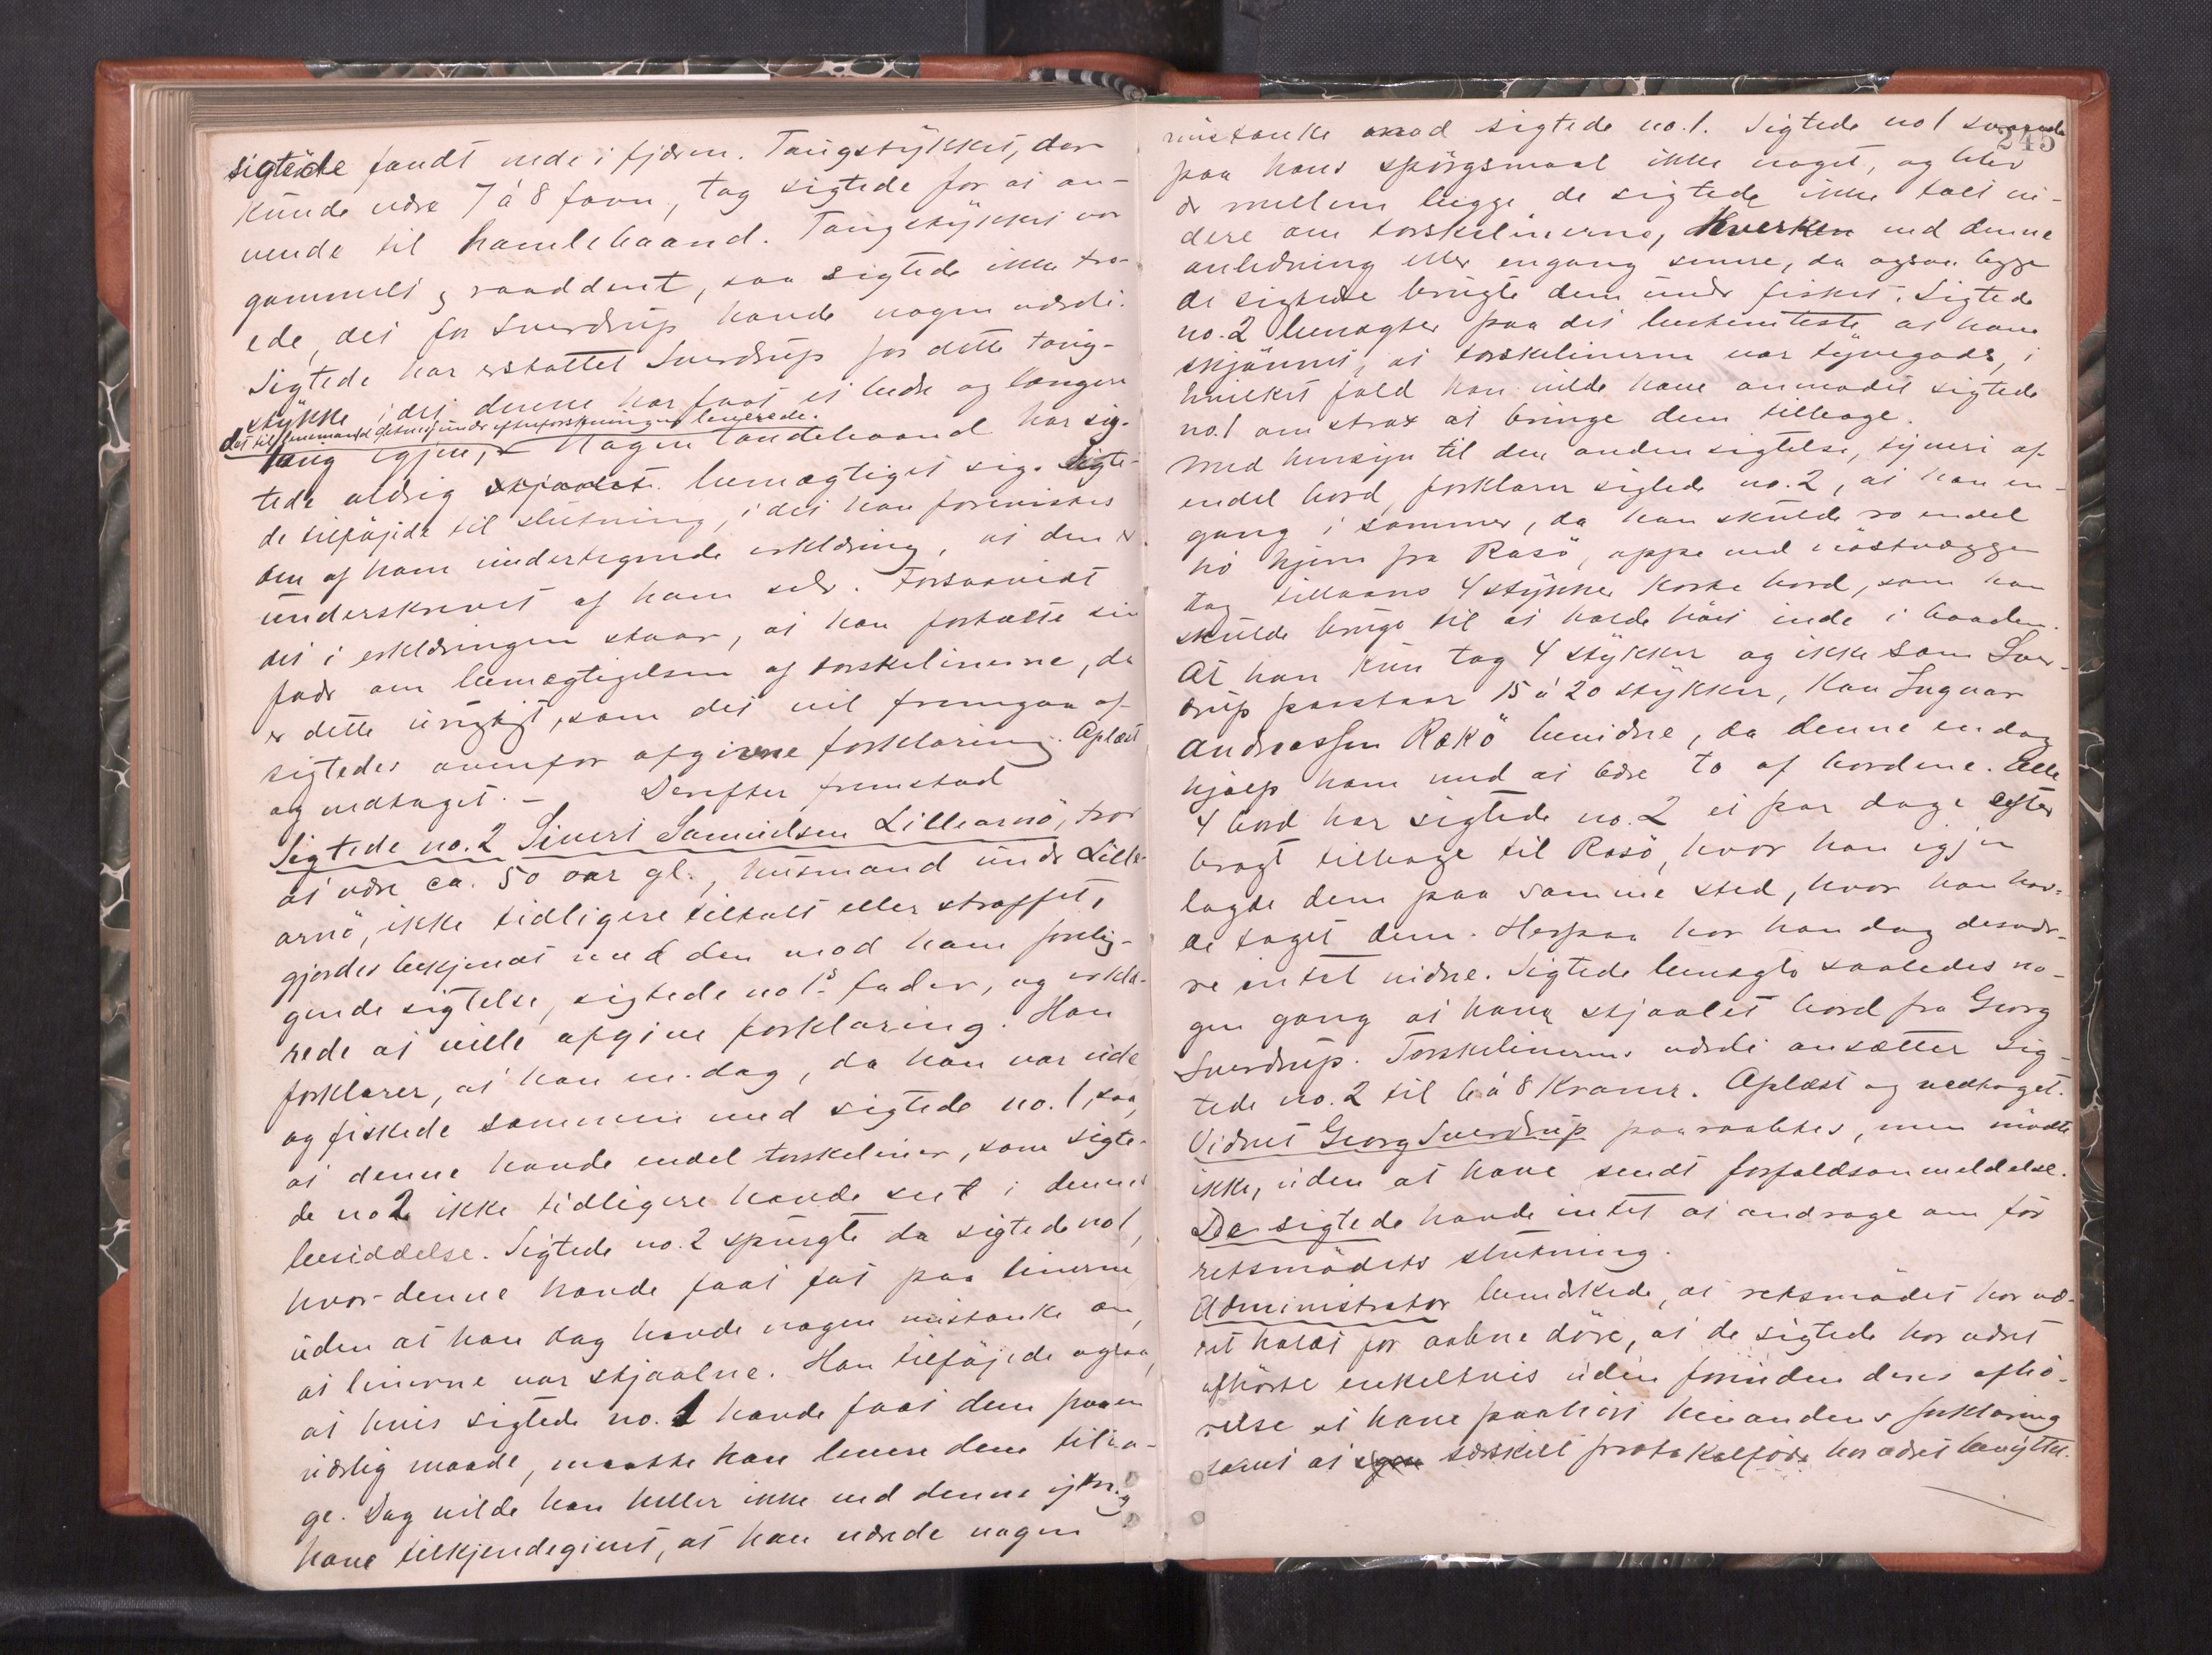 sigtede fandt nede i fjæren. Taugstykket, der
kunde være 7 á 8 favn, tog sigtede for at an-
vende til hamlebaand. Taugstykket var
gammelt og raaddent, saa sigtede ikke tro-
ede, det for Sverdrup havde nogen værdi.
Sigtede har erstattet Sverdrup for dette taug-
stykke, idet denne har faat et bedre og længere
det til lensmand under efterforskningen leverede.
taug igjen, Nogen tøndebaand har sig-
tede aldrig bemægtiget sig. Sigte-
de tilføjede til slutning, idet han forevistes
den af ham undertegnede erklæring, at den er
underskrevet af ham selv. Forsaavidt
det i erklæringen staar, at han fortalte sin
fader om bemægtigelsen af torskelinerne, da
er dette urigtigt, som det vil fremgaa af
sigtedes ovenfor afgivne forklaring. Oplæst
og vedtaget. – Derefter fremstod
Sigtede no. 2 Sivert Samuelsen Lillearnö, tror
at være ca. 50 aar gl., husmand under Lille-
arnö, ikke tidligere tiltalt eller straffet,
gjordes bekjendt med den mod ham forelig-
gende sigtelse, sigtede no 1s fader, og erklæ-
rede at ville afgive forklaring. Han
forklarer, at han en dag, da han var ude
og fiskede sammen med sigtede no. 1, saa,
at denne havde endel torskeliner, som sigte-
de no 2 ikke tidligere havde seet i dennes
besiddelse. Sigtede no. 2 spurgte da sigtede no 1,
hvor denne havde faat fat paa linerne,
uden at han dog havde nogen mistanke om,
at linerne var stjaalne. Han tilføjede ogsaa,
at hvis sigtede no. 1 havde faat dem paa en
uærlig maade, maatte han levere dem tilba-
ge. Dog vilde han heller ikke ved denne ytring
have tilkjendegivet, at han nærede nogen
245
mistanke mod sigtede no. 1. Sigtede no 1 svarede
paa hans spörgsmaal ikke noget, og blev
der mellem begge de sigtede ikke talt vi-
dere om torskelinerne, hverken ved denne
anledning eller engang senere, da ogsaa begge
de sigtede brugte dem under fisket. Sigtede
no. 2 benægter paa det bestemteste at have
skjønnet, at torskelinerne var tyvegods, i
hvilket fald han vilde have anmodet sigtede
no. 1 om strax at bringe dem tilbage.
Med hensyn til den anden sigtelse, tyveri af
endel bord, forklarer sigtede no. 2, at han en-
gang i sommer, da han skulde ro endel
hö hjem fra Rasö, oppe ved nöstvæggen
tog tillaans 4 stykker korte bord, som han
skulde bruge til at holde höet inde i baaden.
At han kun tog 4 stykker og ikke som Sver-
drup paastaar 15 á 20 stykker, kan Ingvar
Andreassen Rakö bevidne, da denne en dag
hjalp ham med at bære to af bordene. Alle
4 bord har sigtede no. 2 et par dage efter
bragt tilbage til Rasö, hvor han igjen
lagde dem paa samme sted, hvor han hav-
de taget dem. Herpaa har han dog desvær-
re intet vidne. Sigtede benægte saaledes no-
gen gang at have stjaalet bord fra Georg
Sverdrup. Torskelinernes værdi ansætter sig-
tede no. 2 til 6 á 8 Kroner. Oplæst og vedtaget.
Vidnet Georg Sverdrup paaraabtes, men mödte
ikke, uden at have sendt forfaldsanmeldelse.
De sigtede havde intet at andrage om för
retsmödets slutning.
Administrator bemærkede, at retsmödet har væ-
ret holdt for aabne döre, at de sigtede har været
afhörte enkeltvis uden forinden deres afhö-
relse at have paahört hinandens forklaring
samt at særskilt protokolförer har været benyttet.